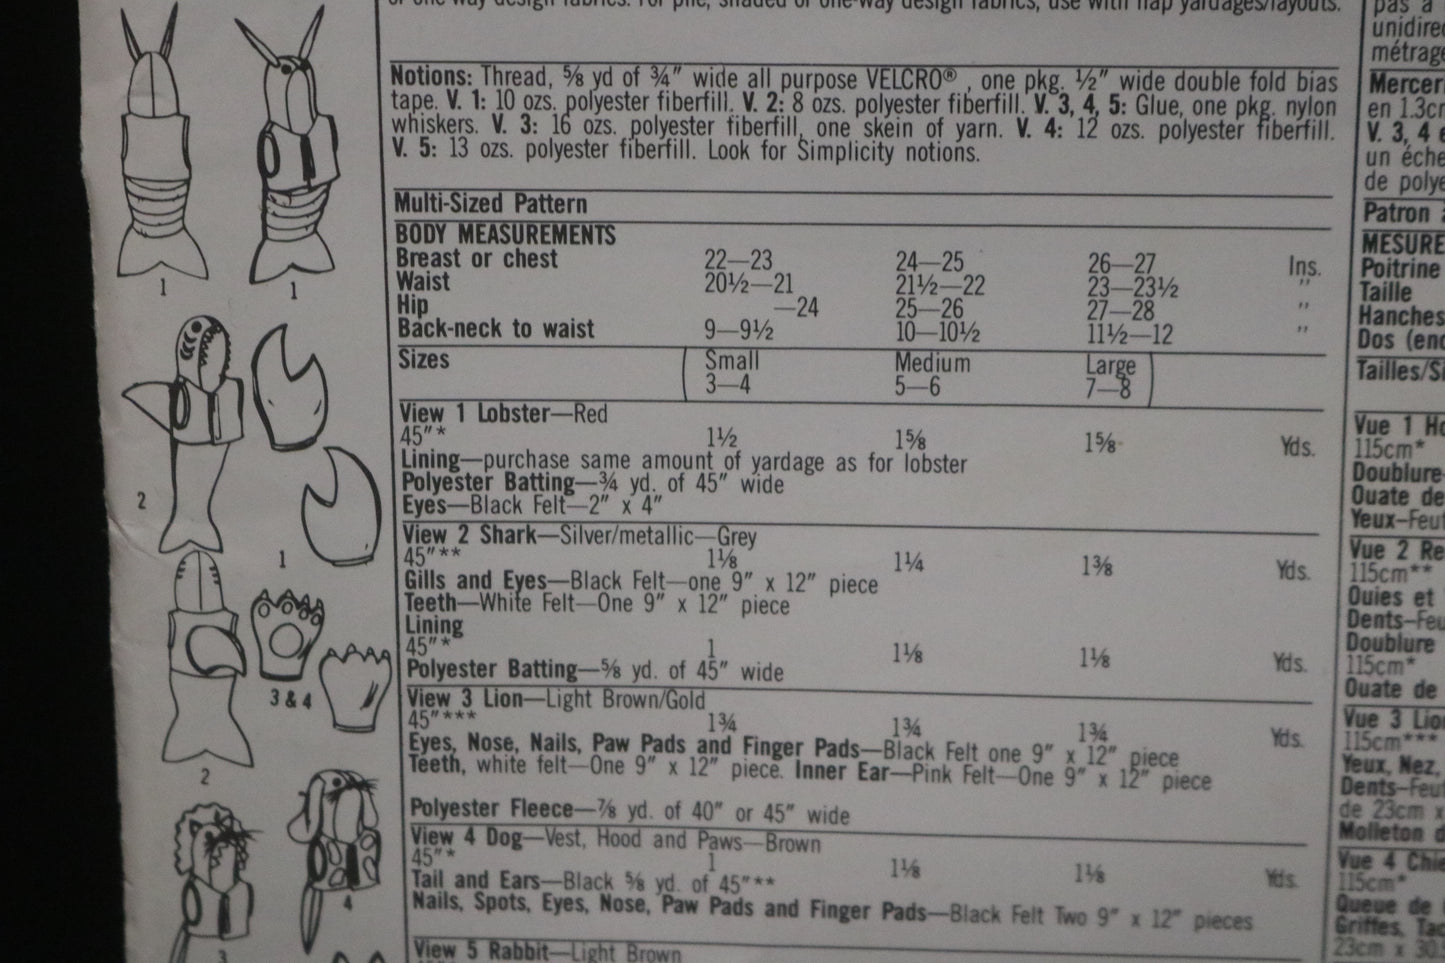 or one-way design fabrics. For pile, shaded or one-way design fabrics, use with nap yardages/layouts.
Notions: Thread, ⅝ yd of ¾" wide all purpose VELCRO®, one pkg. ½" wide double fold bias
tape. V. 1: 10 ozs. polyester fiberfill. V. 2: 8 ozs. polyester fiberfill. V. 3, 4, 5: Glue, one pkg. nylon
whiskers. V. 3: 16 ozs. polyester fiberfill, one skein of yarn. V. 4: 12 ozs. polyester fiberfill.
V. 5: 13 ozs. polyester fiberfill. Look for Simplicity notions.
Multi-Sized Pattern
BODY MEASUREMENTS
Breast or chest 22—23 24—25 26—27 Ins.
Waist 20½—21 21½—22 23—23½ "
Hip —24 25—26 27—28 "
Back-neck to waist 9—9½ 10—10½ 11½—12 "
Sizes Small Medium Large
3—4 5—6 7—8
View 1 Lobster—Red
45"* 1½ 1⅝ 1⅝ Yds.
Lining—purchase same amount of yardage as for lobster
Polyester Batting—¾ yd. of 45" wide
Eyes—Black Felt—2" x 4"
View 2 Shark—Silver/metallic—Grey
45"** 1⅛ 1¼ 1⅜ Yds.
Gills and Eyes—Black Felt—one 9" x 12" piece
Teeth—White Felt—One 9" x 12" piece
Lining
45"* 1 1⅛ 1⅛ Yds.
Polyester Batting—⅝ yd. of 45" wide
View 3 Lion—Light Brown/Gold
45"*** 1¾ 1¾ 1¾ Yds.
Eyes, Nose, Nails, Paw Pads and Finger Pads—Black Felt one 9" x 12" piece
Teeth, white felt—One 9" x 12" piece. Inner Ear—Pink Felt—One 9" x 12" piece
Polyester Fleece—⅞ yd. of 40" or 45" wide
View 4 Dog—Vest, Hood and Paws—Brown
45"* 1 1⅛ 1⅛ Yds.
Tail and Ears—Black ⅝ yd. of 45"**
Nails, Spots, Eyes, Nose, Paw Pads and Finger Pads—Black Felt Two 9" x 12" pieces
View 5 Rabbit—Light Brown
1
1
2
1
3 & 4
2
4
3
pas à
unidirec
métrage
Mercer
en 1.3cm
V. 3, 4
un éche
de polye
Patron
MESURE
Poitrine
Taille
Hanches
Dos (enc
Tailles/S
Vue 1 Ho
115cm*
Doublure
Ouate de
Yeux—Feu
Vue 2 Re
115cm**
Ouies et
Dents—Feu
Doublure
115cm*
Ouate de
Vue 3 Lio
115cm***
Yeux, Nez,
Dents—Feu
de 23cm x
Molleton d
Vue 4 Chie
115cm*
Queue de
Griffes, Tac
23cm x 30